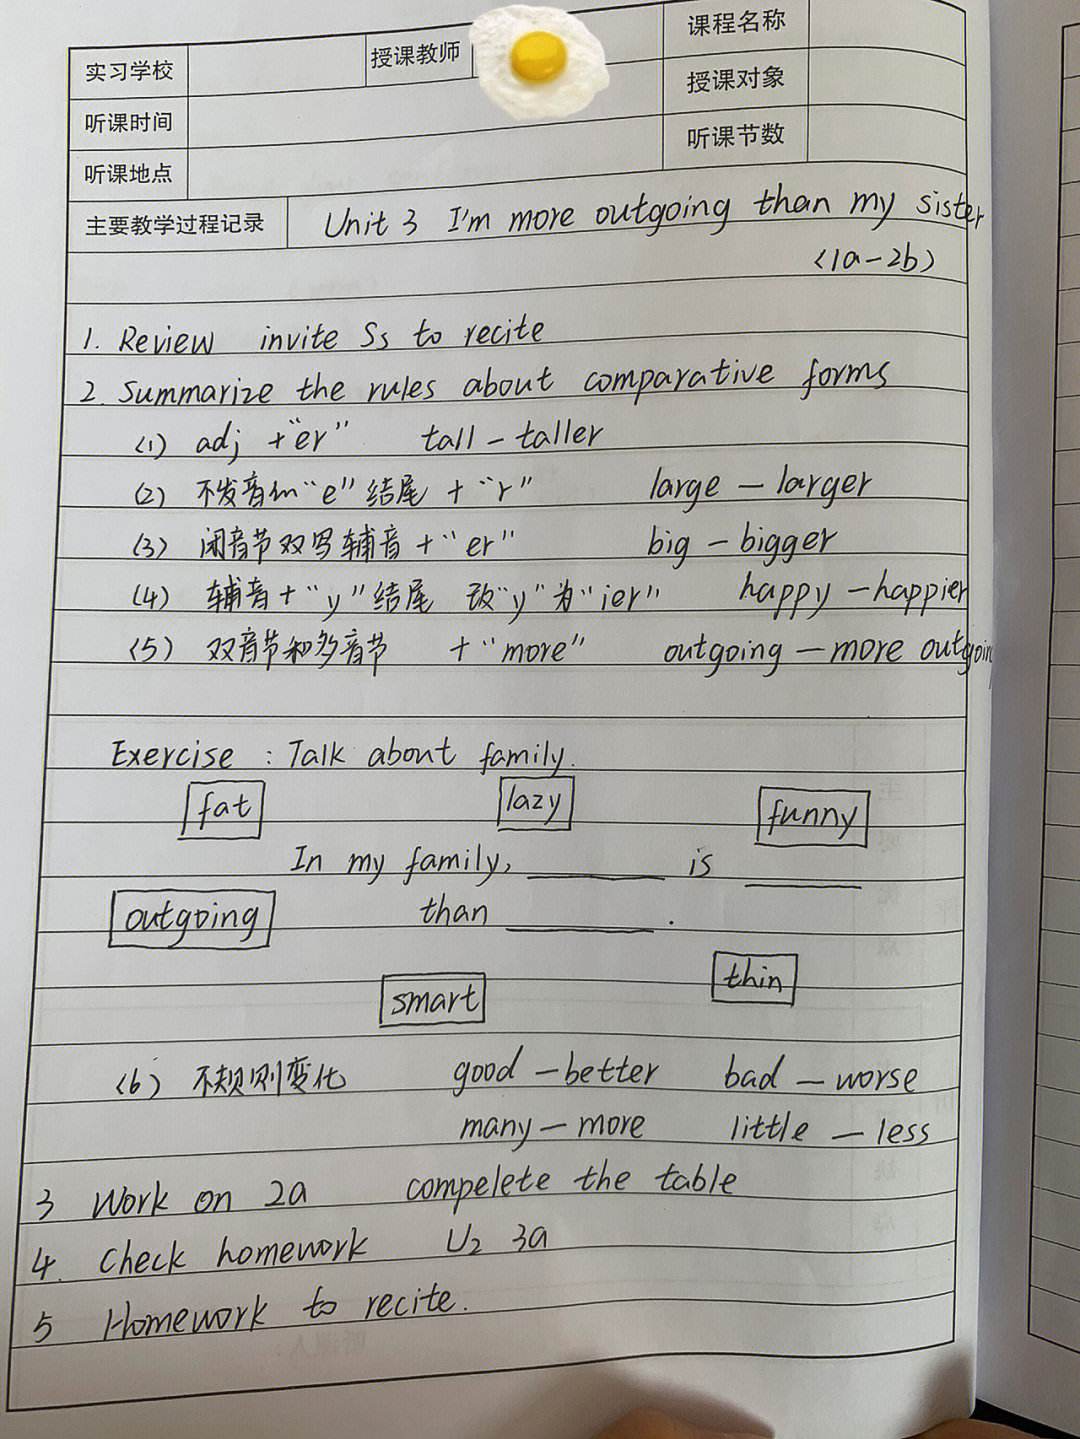 实习学校 授课教师 课程名称
听课时间 授课对象
听课地点 听课节数
主要教学过程记录 Unit 3 I'm more outgoing than my sister
(1a-2b)
1. Review invite Ss to recite
2. Summarize the rules about comparative forms
(1) adj +"er" tall - taller
(2) 不发音的"e"结尾 + "r" large - larger
(3) 闭音节双写辅音 + "er" big - bigger
(4) 辅音+"y"结尾 改"y"为"ier" happy - happier
(5) 双音节和多音节 + "more" outgoing - more outgoing
Exercise : Talk about family.
fat lazy funny
In my family, ______ is ______
outgoing than ______.
smart thin
(6) 不规则变化 good - better bad - worse
many - more little - less
3 Work on 2a compelete the table
4. Check homework U2 3a
5 Homework to recite.